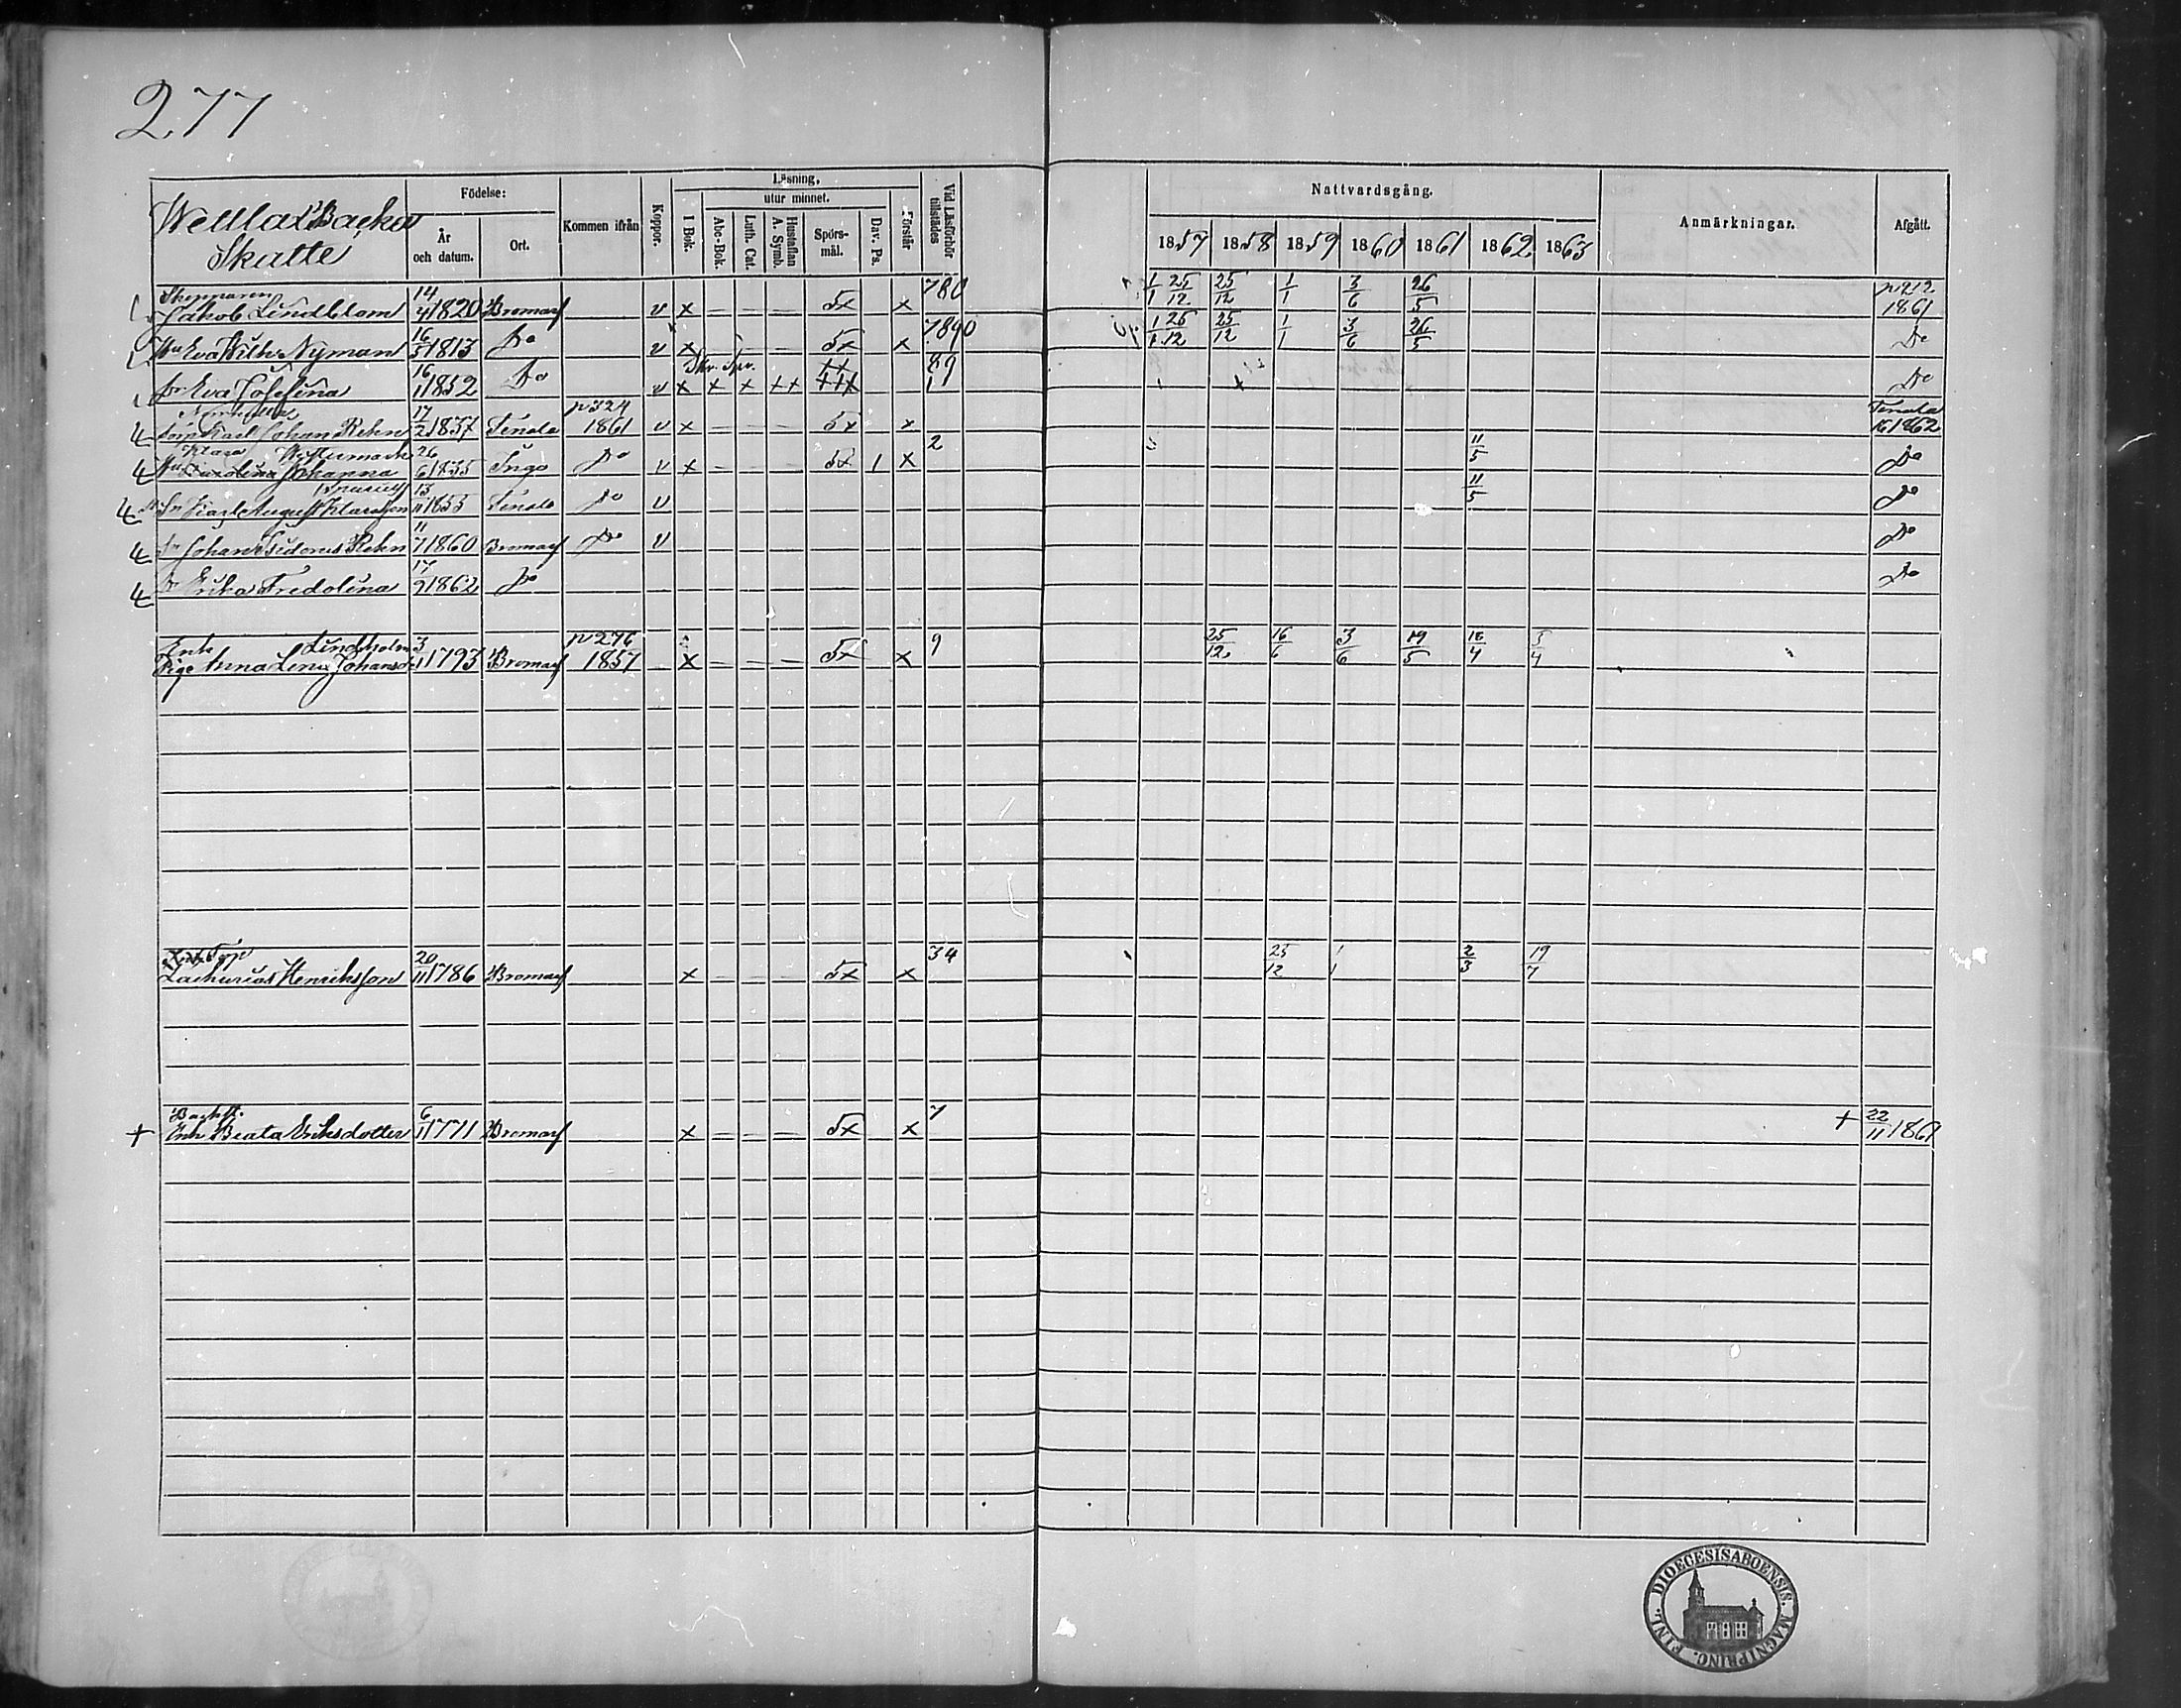 277
Wettlax Backas
Skatte
Födelse:
År och datum.
Ort.
Kommen ifrån
Koppor.
Läsning,
I Bok.
utur minnet.
Abc-Bok.
Luth. Cat.
Hustaflan A. Symb.
Spörs-mål.
Dav. Ps.
Förstår
Vid Läsförhör tillstädes
Nattvardsgång.
1857 1858 1859 1860 1861 1862 1863
Anmärkningar.
Afgått.
Jakob Lindblom 14/4 1820 Bromarf v x – – – – 5x x 780 1/1 25/12 25/12 1/1 3/6 26/5 p 212 1861
Hu Eva Wilh. Nyman 16/5 1813 Do v x – – – – 5x x 7890 1/1 25/12 25/12 1/1 3/6 26/5 Do
Dr Eva Josefina 16/1 1852 Do v x x x xx 89 Do
Karl Johan Rehn 17/2 1837 Tenala p 324 1861 v x – – – 5x x Tenala 1862
Hu Carolina Johanna 26/6 1835 Ingo Do v x – – – 5x 1 x 2 11/5 Do
Sn Karl August 13/11 1855 Tenala Do v 11/5 Do
Sn Johan Isidorus Rehn 11/7 1860 Bromarf Do v Do
Dr Erika Fredolina 17/9 1862 Do Do
Enk. Lindholm
Pige Anna Lena Johansdr 3/11 1793 Bromarf p 276 1857 x – – – 5x x 9 25/12 16/6 3/6 19/5 18/4 5/4
Zacharias Henriksson 20/11 1786 Bromarf x – – – 5x x 34 25/12 1/1 2/3 19/7
Backst.
+ Enk. Beata Eriksdotter 6/1 1771 Bromarf x – – – 5x x 7 + 22/11 1861
FINL. DIOECESIS ABOENSIS. MAGNI PRINC.